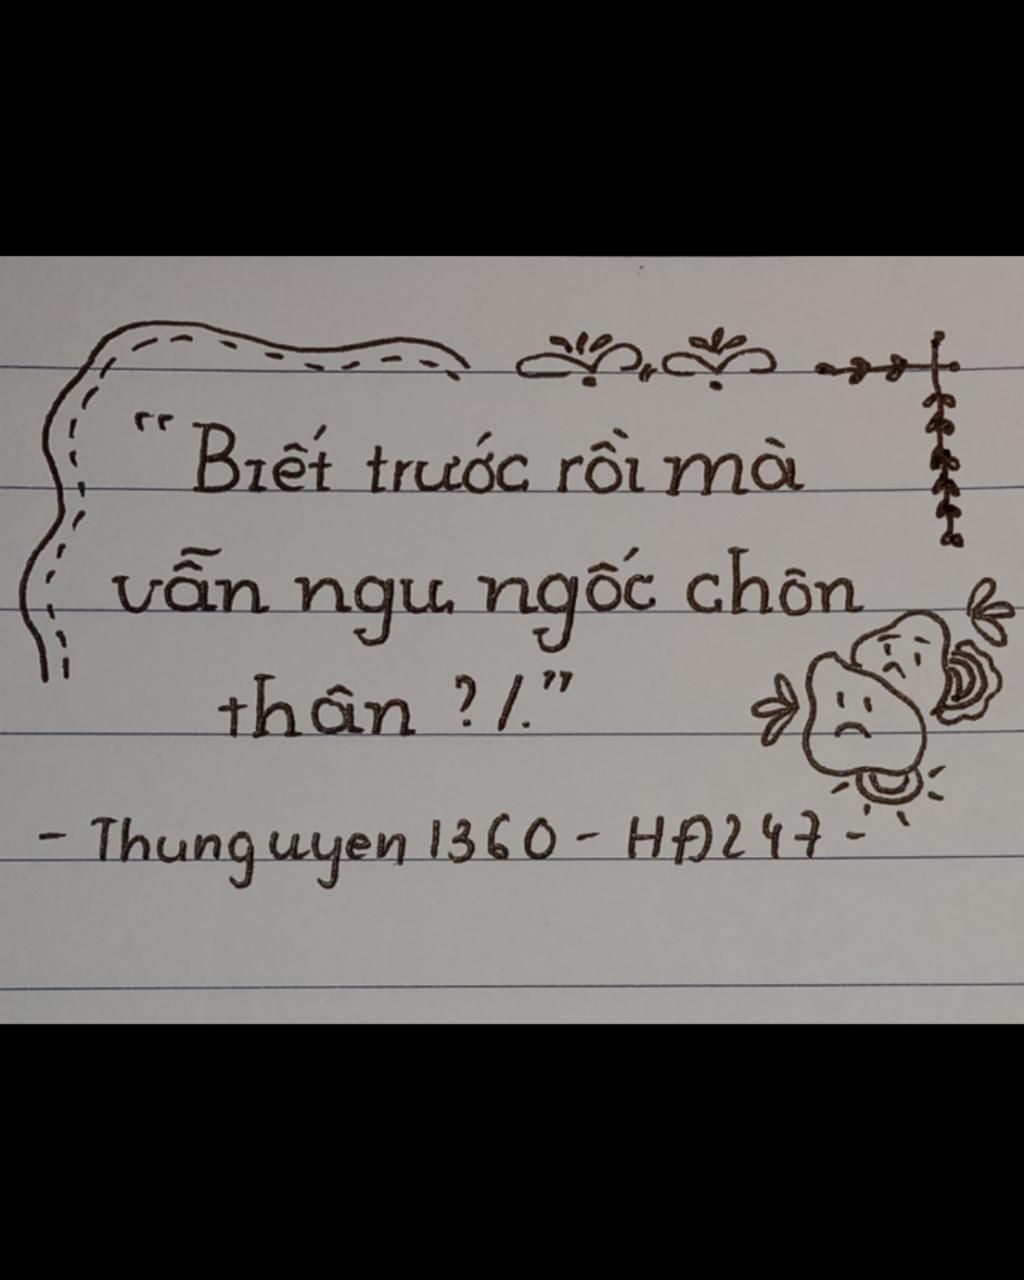 “Biết trước rồi mà
vẫn ngu ngốc chôn
thân ?/.”
- Thunguyen 1360 - HĐ247 -